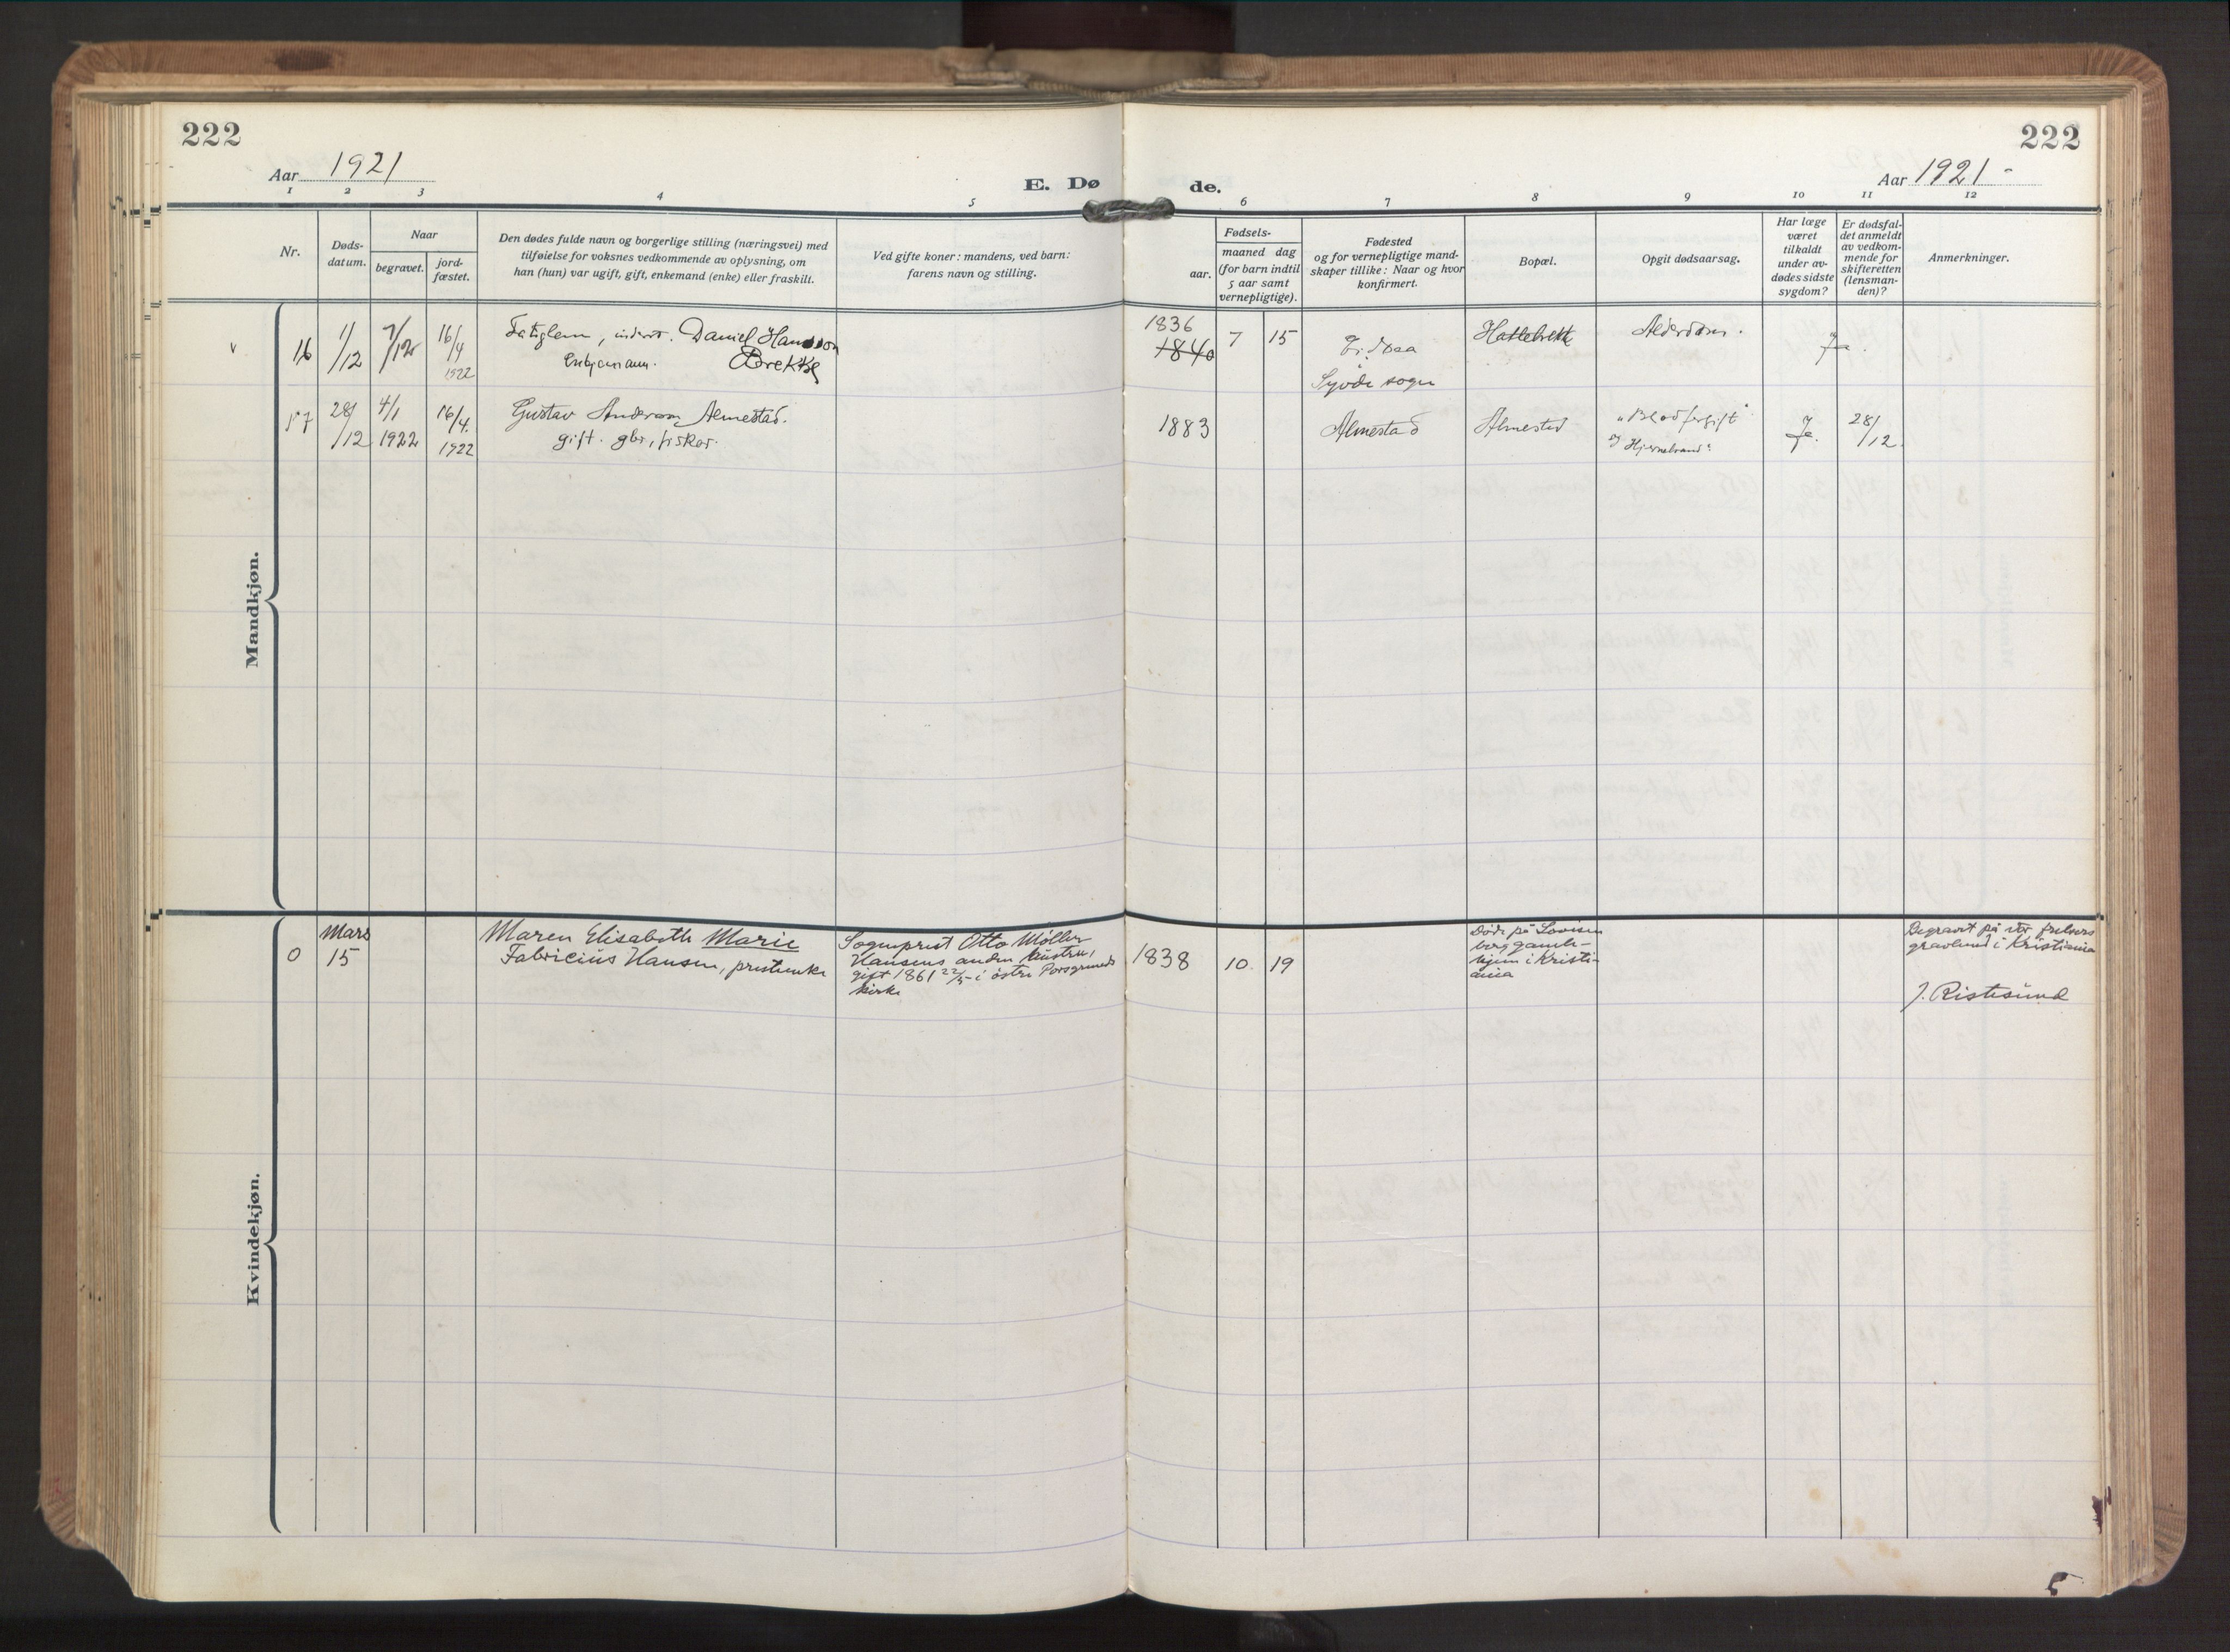 222
222
Aar 1921
E. Døde.
Aar 1921 -
1 2 3 4 5 6 7 8 9 10 11 12
Nr.
Døds-
datum.
Naar
begravet.
jord-
fæstet.
Den dødes fulde navn og borgerlige stilling (næringsvei) med
tilføielse for voksnes vedkommende av oplysning, om
han (hun) var ugift, gift, enkemand (enke) eller fraskilt.
Ved gifte koner: mandens, ved barn:
farens navn og stilling.
Fødsels-
aar.
maaned dag
(for barn indtil
5 aar samt
vernepligtige).
Fødested
og for vernepligtige mand-
skaper tillike: Naar og hvor
konfirmert.
Bopæl.
Opgit dødsaarsag.
Har læge
været
tilkaldt
under av-
dødes sidste
sygdom?
Er dødsfal-
det anmeldt
av vedkom-
mende for
skifteretten
(lensman-
den)?
Anmerkninger.
Mandkjøn.
v
16
1/12
7/12
16/4
1922
Fatiglem, Daniel Hansson
Brekke
1836
1840
7 15
Syvde sogn
Hattebrekk
Ja.
17
28/12
4/1
1922
16/4.
1922
Gustav Anderson Almestad.
gift. gbr, fisker.
1883
Almestad
Almestad
"Blodforgift"
og Hjernebrand"
Ja.
28/12.
Kvindekjøn.
0
Mars
15
Maren Elisabeth Marie
Fabricius Hansen, prestenke
Sogneprest Otto Møller
Hansens anden hustru,
gift 1861 22/5 i østre Porsgrunds
kirke
1838
10. 19
Døde på Lovisen
berg gamle-
hjem i Kristi-
ania
Begravet på vår frelsers
gravlund i Kristiania
J. Ristesund
5